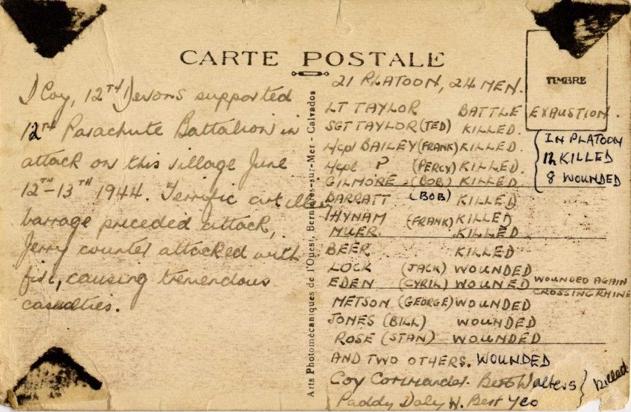 CARTE POSTALE
TIMBRE
D Coy, 12TH Devons supported
12TH Parachute Battalion in
attack on this village June
12TH-13TH 1944. Terrific artillery
barrage preceded attack,
Jerry counter attacked with
fire, causing tremendous
casualties.
Arts Photomécaniques de l'Ouest, Bernières-sur-Mer - Calvados
21 PLATOON, 24 MEN.
LT TAYLOR BATTLE EXAUSTION.
SGT TAYLOR (TED) KILLED.
BAILEY (FRANK) KILLED.
? (PERCY) KILLED.
GILMORE. (BOB) KILLED
BARRATT (BOB) KILLED
HYNAM (FRANK) KILLED
KILLED
BEER KILLED
LOCK (JACK) WOUNDED
EDEN (CYRIL) WOUNED WOUNDED AGAIN
CROSSING RHINE
METSON (GEORGE) WOUNDED
JONES (BILL) WOUNDED
ROSE (STAN) WOUNDED
AND TWO OTHERS. WOUNDED
Coy Commander. Walters
Paddy Daly W. Bert Yeo
Killed
IN PLATOON
KILLED
8 WOUNDED